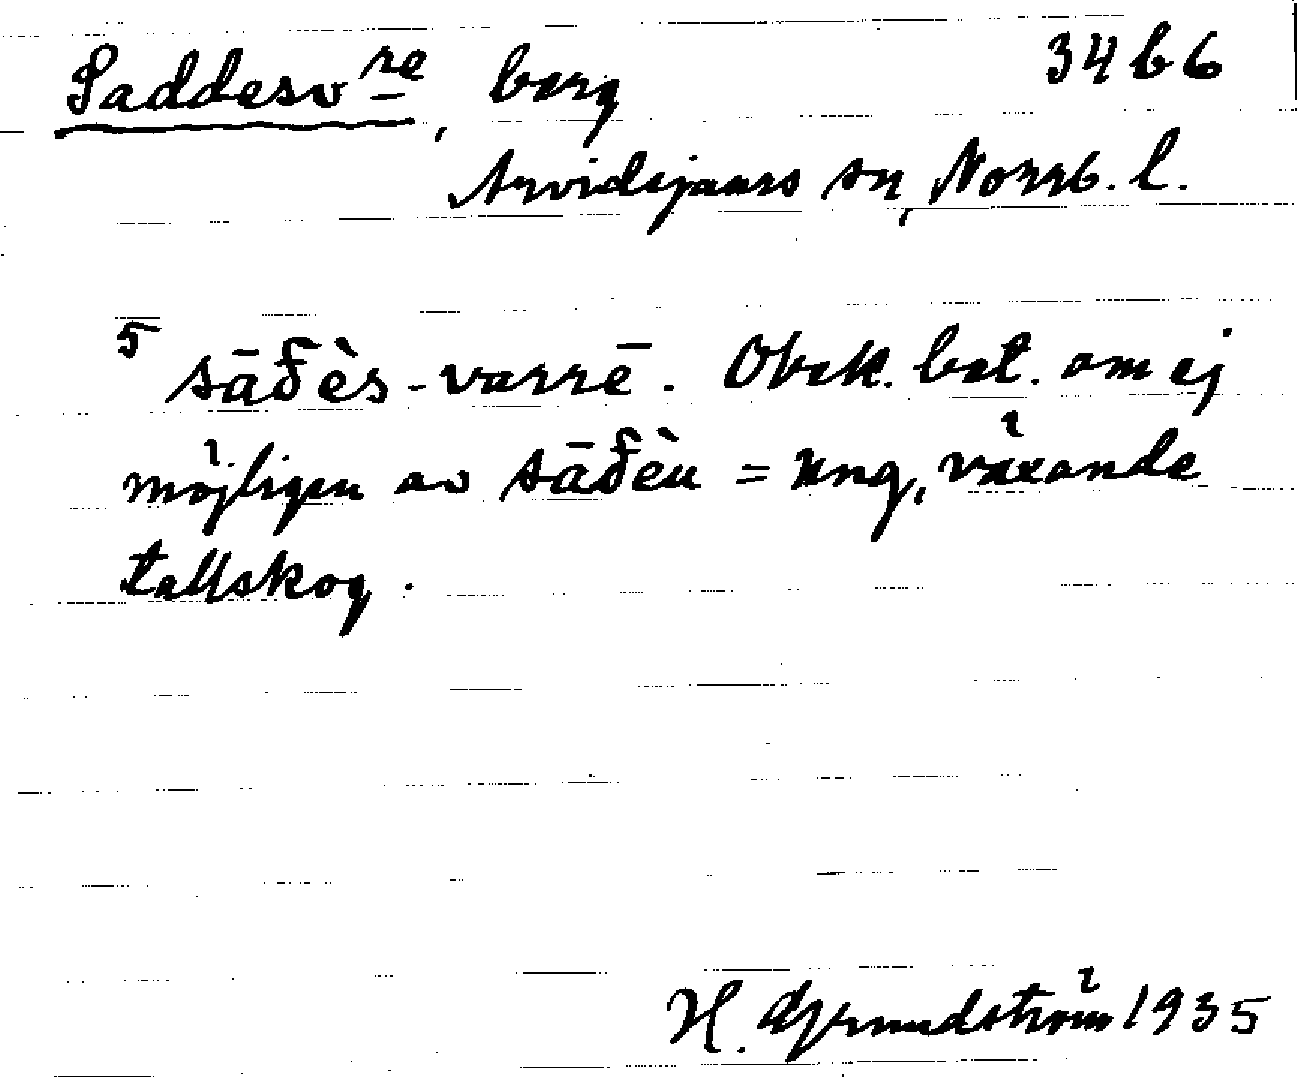 Saddesvre, berg 34 b 6
Arvidsjaurs sn, Norrb. l.
5 sāδ̄ès-varrē. Obek. bet. om ej
möjligen av sāδ̄èu = ung, växande
tallskog.
H. Grundström 1935